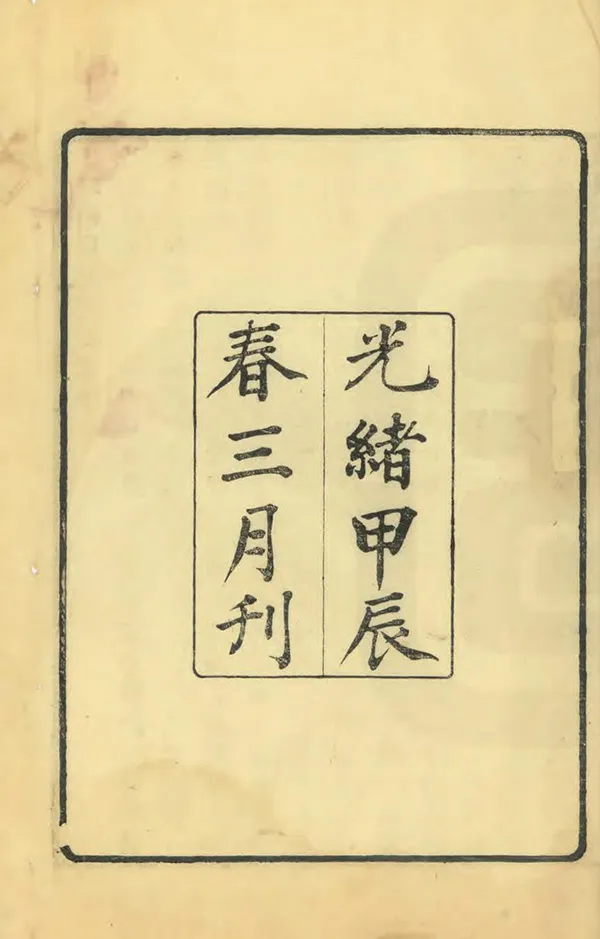 光緒甲辰
春三月刊